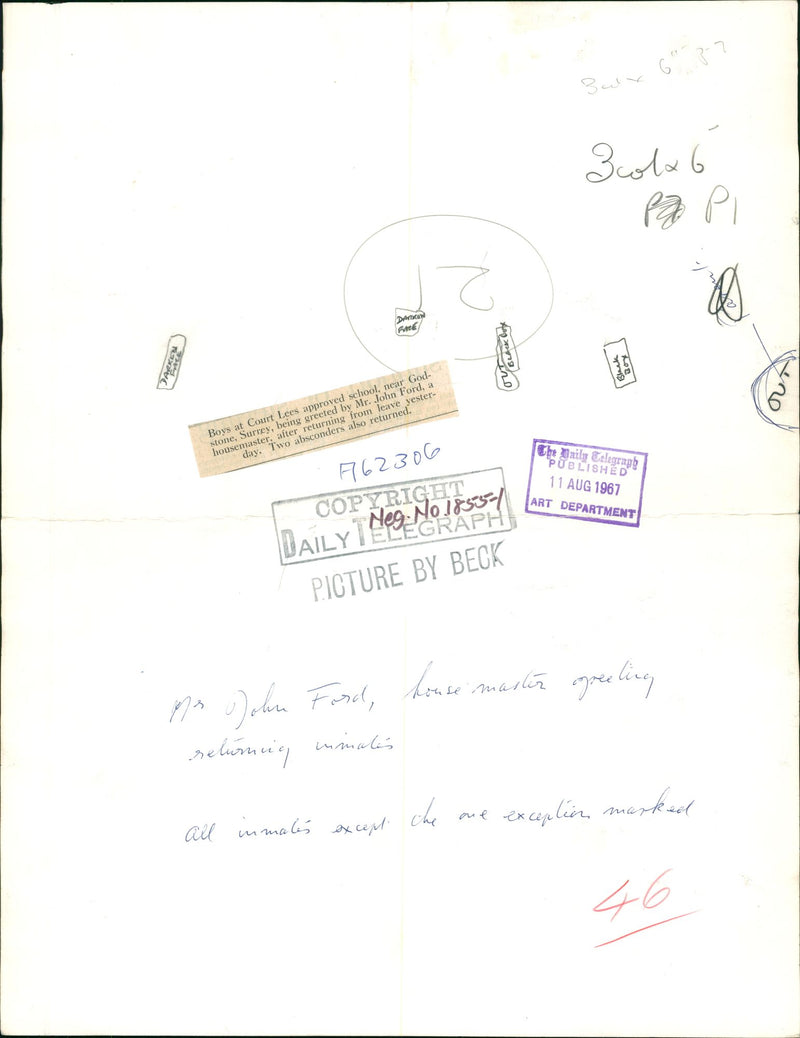 6" P-7
3col x 6"
P1
DARKEN FACE
OUT BLACK BOX
DARKEN FACE
Black BOX
OUT
Boys at Court Lees approved school, near God-
stone, Surrey, being greeted by Mr. John Ford, a
housemaster, after returning from leave yester-
day. Two absconders also returned.
A62306
The Daily Telegraph
PUBLISHED
11 AUG 1967
ART DEPARTMENT
COPYRIGHT
Neg. No. 1855-1
DAILY TELEGRAPH
PICTURE BY BECK
Mr John Ford, house master greeting
returning inmates
All inmates except the one exception marked
46